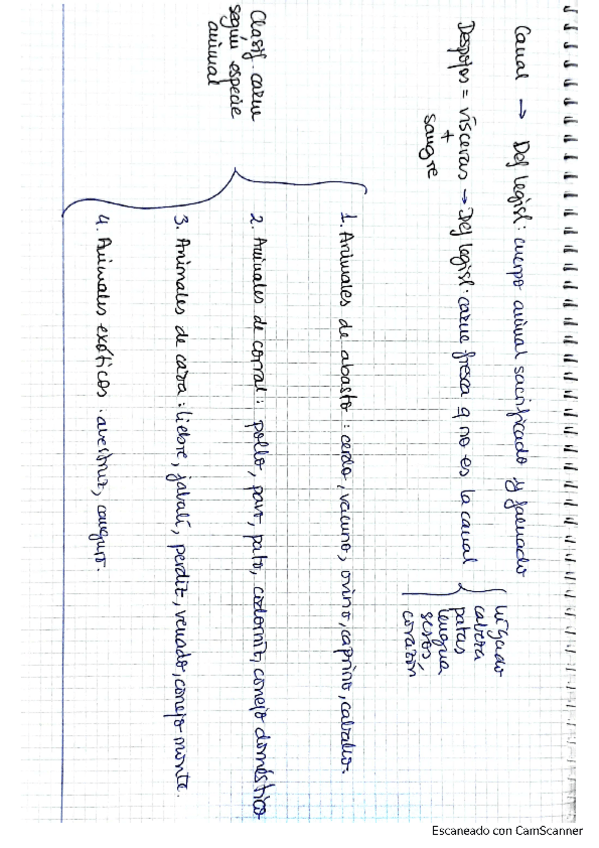 Canal → Def legisl: cuerpo animal sacrificado y faenado
Despojos = vísceras → Def legisl. carne fresca q no es la canal
+
sangre
hígado
cabeza
patas
lengua
sesos,
corazón
Clasif. carne
según especie
animal
1. Animales de abasto: cerdo, vacuno, ovino, caprino, caballo.
2. Animales de corral: pollo, pavo, pato, codorniz, conejo doméstico
3. Animales de caza: liebre, jabalí, perdiz, venado, conejo monte.
4. Animales exóticos: avestruz, canguro.
Escaneado con CamScanner